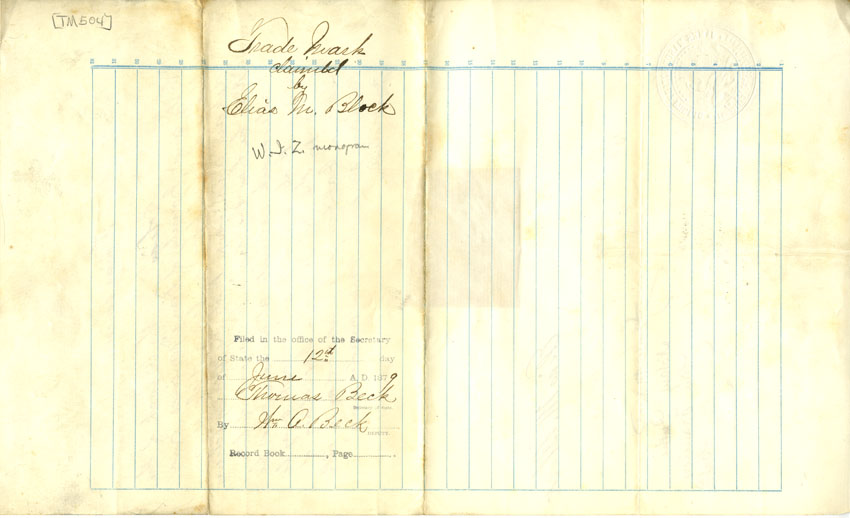 [TM504]
Trade Mark
claimed
by
Elias M. Block
W.I.Z. monogram
Filed in the office of the Secretary
of State the 12th day
of June A.D. 1879
Thomas Beck
Secretary of State.
By Wm A. Beck
DEPUTY.
Record Book , Page